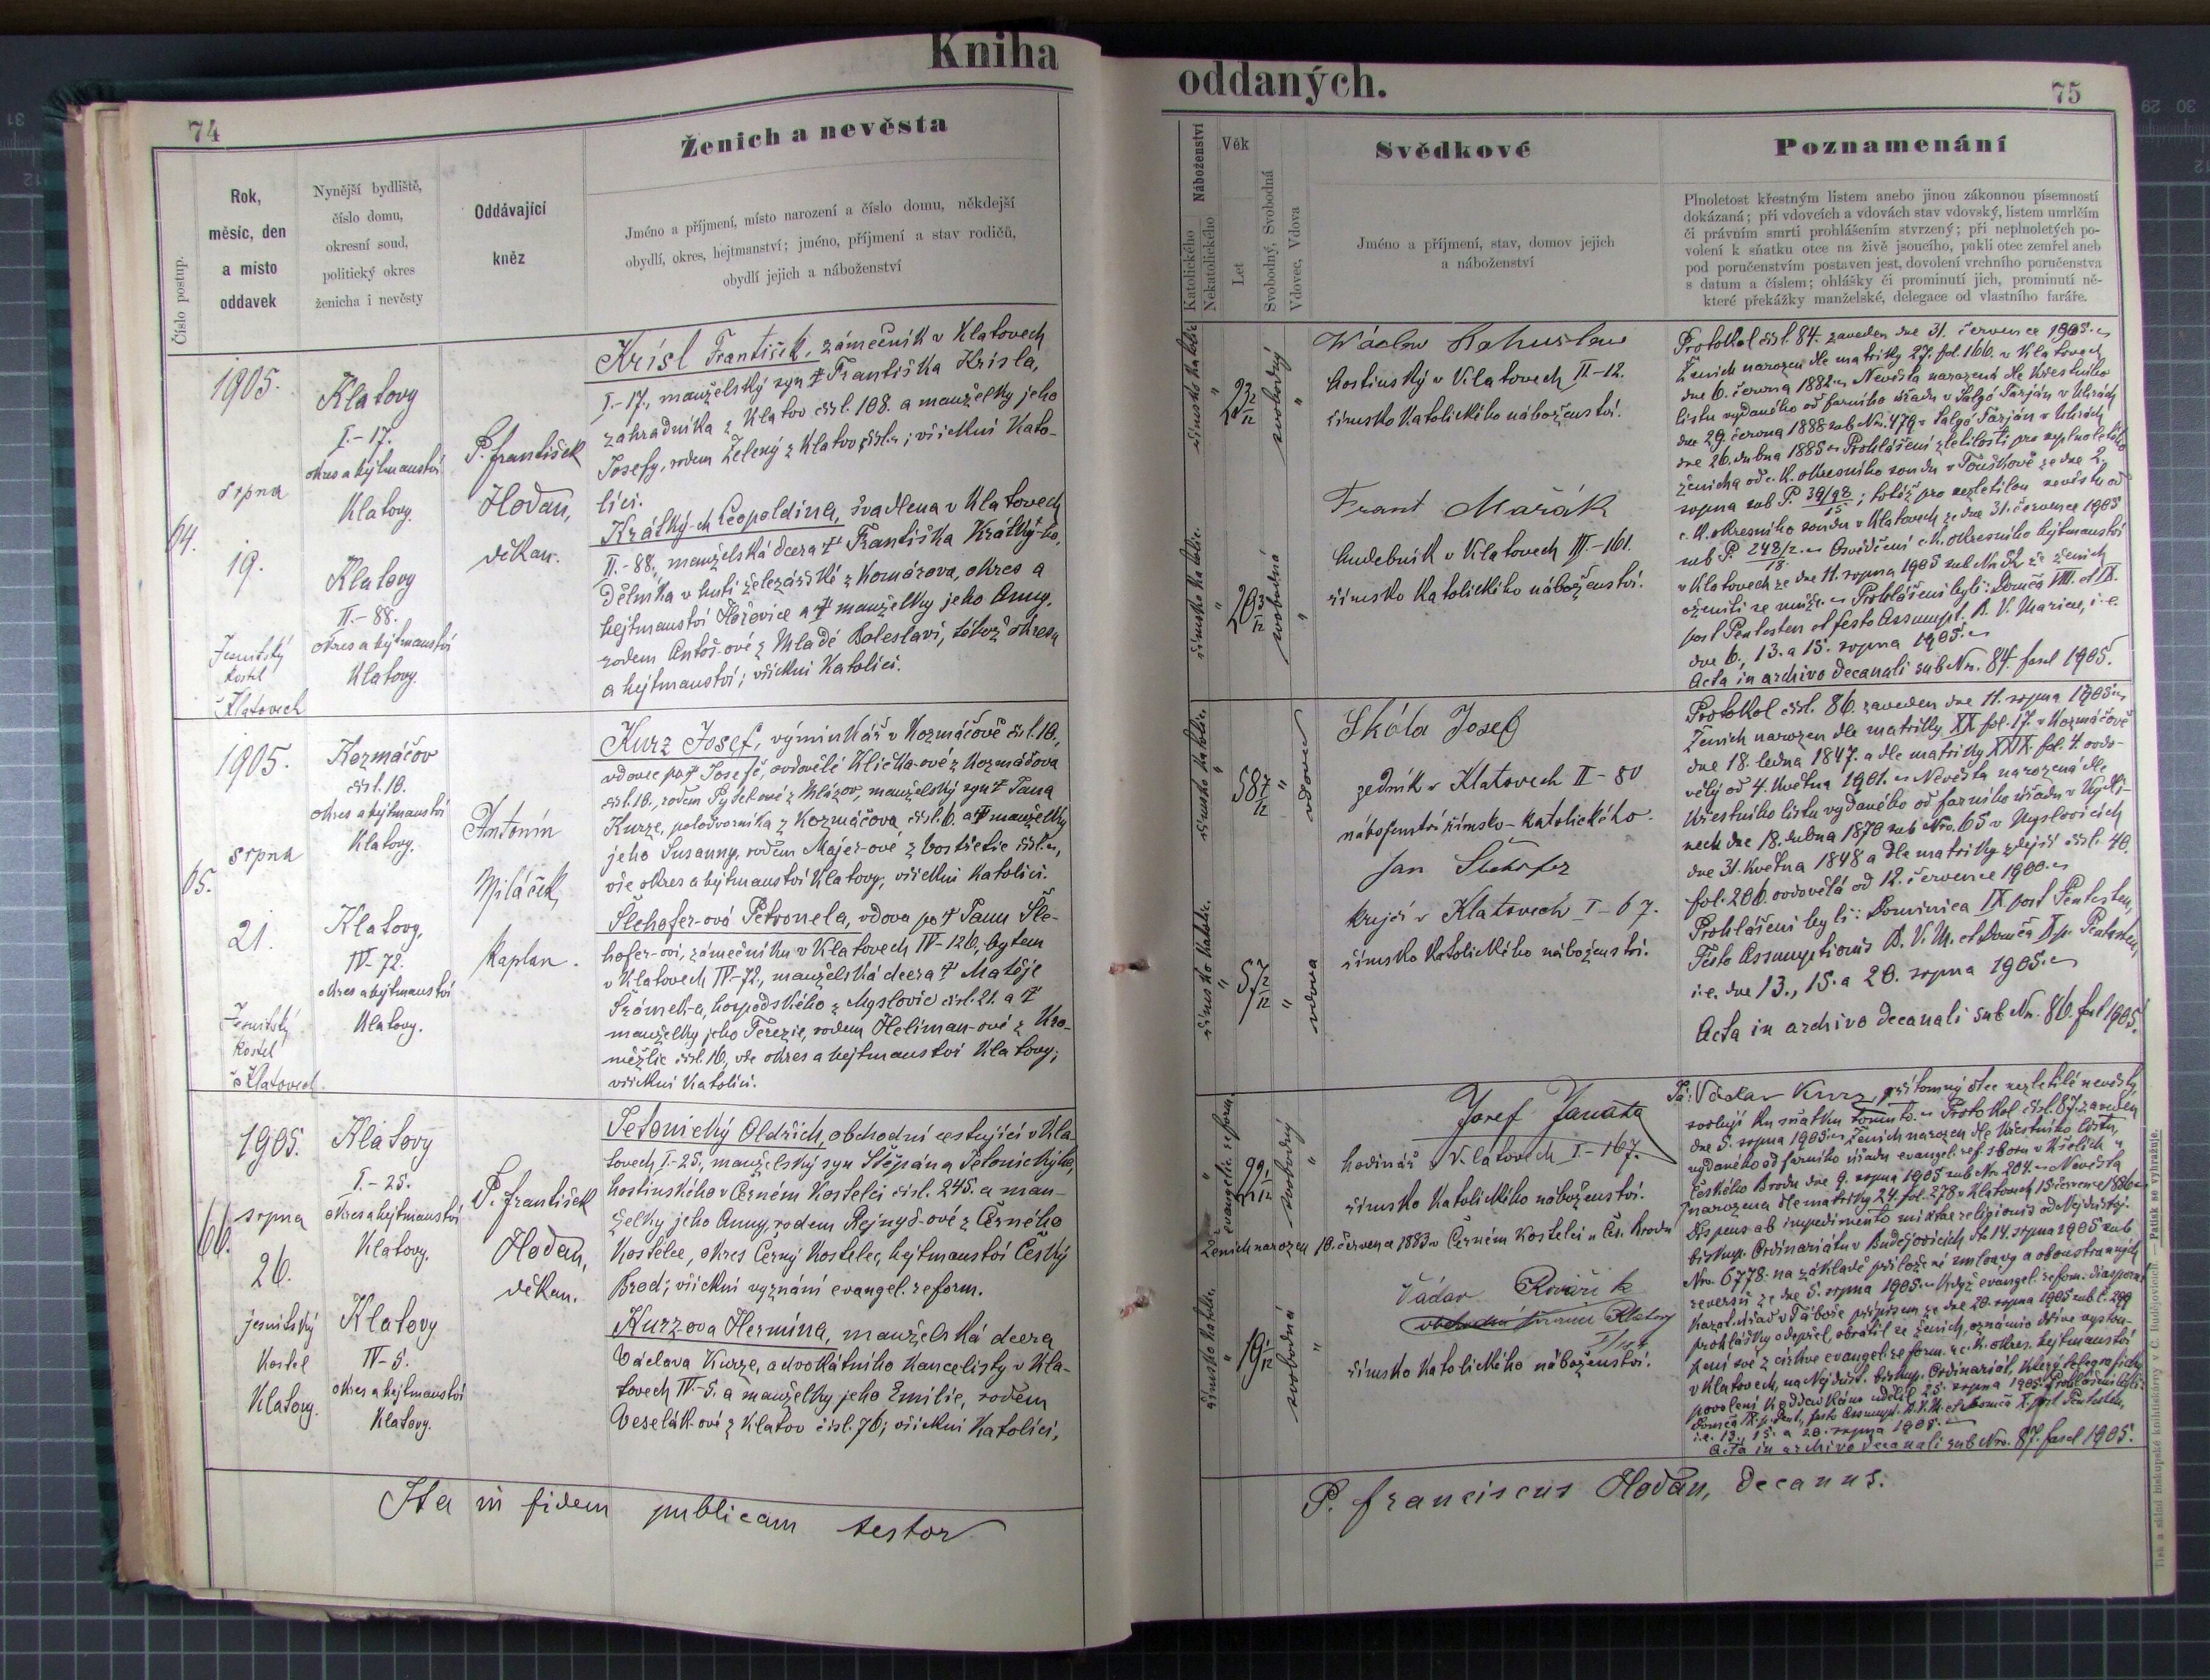 Kniha
74
Číslo postup.
Rok,
měsíc, den
a místo
oddavek
Nynější bydliště,
číslo domu,
okresní soud,
politický okres
ženicha i nevěsty
Oddávající
kněz
Ženich a nevěsta
Jméno a příjmení, místo narození a číslo domu, někdejší
obydlí, okres, hejtmanství; jméno, příjmení a stav rodičů,
obydlí jejich a náboženství
64.
1905.
srpna
19.
Jesuitský
kostel
v Klatovech
Klatovy
I.-17.
okres a hejtmanství
Klatovy.
Klatovy
II.-88.
okres a hejtmanství
Klatovy.
P. František
Hoďan,
děkan.
Krisl František, zámečník v Klatovech
I.-17., manželský syn † Františka Krisla,
zahradníka z Klatov čísl. 108. a manželky jeho
Josefy, rodem Zelený z Klatov; všickni kato-
líci.
Krátký-ch Leopoldina, švadlena v Klatovech
II.-88., manželská dcera † Františka Krátký-ho,
dělníka v huti železářské z Komárova, okres a
hejtmanství Hořovice a † manželky jeho Anny,
rodem Antoš-ové z Mladé Boleslavi, téhož okresu
a hejtmanství; všickni katolíci.
65.
1905.
srpna
21.
Jesuitský
kostel
v Klatovech.
Kozmáčov
čísl. 10.
okres a hejtmanství
Klatovy.
Klatovy,
IV-72.
okres a hejtmanství
Klatovy.
Antonín
Miláček,
kaplan.
Kurz Josef, výminkář v Kozmáčově čísl. 10,
vdovec po † Josefě, ovdovělé Klička-ové z Kozmáčova
čísl. 10., rodem Pytlekové z Mlázov, manželský syn † Jana
Kurze, polodvorníka z Kozmáčova čísl. 6. a † manželky
jeho Susanny, rodem Majer-ové z
vše okres a hejtmanství Klatovy; všickni katolíci.
Šlehofer-ová Petronela, vdova po † Janu Šle-
hofer-ovi, zámečníku v Klatovech IV-126, bytem
v Klatovech IV-72., manželská dcera † Matěje
Šrámek-a, hospodského z Myslovic čísl. 21. a †
manželky jeho Terezie, rodem Heliman-ové z Kro-
měždic čísl. 16, vše okres a hejtmanství Klatovy;
všickni katolíci.
66.
1905.
srpna
26.
jesuitský
kostel
Klatovy.
Klatovy
I.-25.
okres a hejtmanství
Klatovy.
Klatovy
IV-5.
okres a hejtmanství
Klatovy.
P. František
Hoďan,
děkan.
Tetonický Oldřich, obchodní cestující v Kla-
tovech I-25., manželský syn Štěpána Tetonického,
hostinského v Černém Kostelci čísl. 245. a man-
želky jeho Anny, rodem Rejnyš-ové z Černého
Kostelce, okres Černý Kostelec, hejtmanství Český
Brod; všickni vyznání evangel. reform.
Kurzova Hermína, manželská dcera
Václava Kurze, advokátního kancelisty v Kla-
tovech IV.-5. a manželky jeho Emilie, rodem
Veselák-ové z Klatov čísl. 76; všickni katolíci,
Ita in fidem publicam testor
oddaných.
75
Náboženství
Katolického
Nekatolického
Věk
Let
Svobodný, Svobodná
Vdovec, Vdova
Svědkové
Jméno a příjmení, stav, domov jejich
a náboženství
Poznamenání
Plnoletost křestným listem anebo jinou zákonnou písemností
dokázaná; při vdovcích a vdovách stav vdovský, listem umrlčím
či právním smrti prohlášením stvrzený; při neplnoletých po-
volení k sňatku otce na živě jsoucího, pakli otec zemřel aneb
pod poručenstvím postaven jest, dovolení vrchního poručenstva
s datum a číslem; ohlášky či prominutí jich, prominutí ně-
které překážky manželské, delegace od vlastního faráře.
římsko katolic.
23 2/12
svobodný
římsko katolic.
20 3/12
svobodná
Václav Bohuslav
hostinský v Klatovech II-12.
římsko katolického náboženství.
Frant Mařák
hudebník v Klatovech III-161.
římsko katolického náboženství.
Protokol čísl. 84. zaveden dne 31. července 1905.
Ženich narozen dle matriky 27. fol. 166. v Klatovech
dne 6. června 1882. Nevěsta narozená dle křestního
listu vydaného od farního úřadu v Salgó Tarján v Uhrách
dne 29. června 1888 sub Nr. 479 v Salgó Tarján v Uhrách
dne 26. dubna 1885. Prohlášení zletilosti pro neplnoletého
ženicha od c. k. okresního soudu v Touškově ze dne 2.
srpna sub P. 39/98/15; totéž pro nezletilou nevěstu od
c. k. okresního soudu v Klatovech ze dne 31. července 1905
sub P. 248/2/18. Osvědčení c. k. okresního hejtmanství
v Klatovech ze dne 11. srpna 1905 že ženich
oženiti se může. Prohlášeni byli: Domca VIII. et IX.
post Pentecosten et festo Assumpt. B. V. Mariae, i. e.
dne 6., 13. a 15. srpna 1905.
Acta in archivo decanali sub Nr. 84. fasc 1905.
římsko katolic.
58 7/12
vdovec
římsko katolic.
57 2/12
vdova
Skála Josef
zedník v Klatovech II-80
náboženství římsko-katolického.
Jan
krejčí v Klatovech I-67.
římsko katolického náboženství.
Protokol čísl. 86. zaveden dne 11. srpna 1905.
Ženich narozen dle matriky XX fol. 17. v Kozmáčově
dne 18. ledna 1847. a dle matriky XXIX. fol. 4. ovdo-
vělý od 4. května 1901. Nevěsta narozená dle
křestního listu vydaného od farního úřadu v Kydli-
nech dne 18. dubna 1870 sub Nro. 65 v Myslovicích
dne 31. května 1848 a dle matriky zdejší čísl. 40.
fol. 206. ovdovělá od 12. července 1900.
Prohlášeni byli: Dominica IX post Pentecosten,
Festo Assumptionis B. V. M. et Domca X p. Pentecosten,
i. e. dne 13., 15. a 20. srpna 1905.
Acta in archivo decanali sub Nr. 86. fasc 1905.
evangelic. reform.
22 1/12
svobodný
římsko katolic.
19 1/12
svobodná
Josef Janata
hodinář v Klatovech I-167.
římsko katolického náboženství.
Ženich narozen 10. června 1883 v Černém Kostelci u Čes. Brodu
Václav
Klatovy
římsko katolického náboženství.
Já: Václav Kurz, přítomný otec nezletilé nevěsty,
svoluji ku sňatku tomuto. Protokol čísl. 87. zaveden
dne 5. srpna 1905. Ženich narozen dle křestního listu,
vydaného od farního úřadu evangel. ref. sboru v Kšelích u
Českého Brodu dne 9. srpna 1905 sub Nr. 204. Nevěsta
narozena dle matriky 24. fol. 278 v Klatovech 15 července 1886.
Dispens ab impedimento mixtae religionis od Nejdůstoj.
biskup. Ordinariátu v Budějovicích dto 14. srpna 1905 sub
Nro. 6778. na základě přiložené smlouvy a oboustranných
reversů ze dne 5. srpna 1905. Když evangel. reform. diaspora
kazat. úřad v Táboře přípisem ze dne 20. srpna 1905 sub č. 299
prohlášky odepřel, obrátil se ženich, oznámiv dříve vystou-
pení své z církve evangel. reform. u c. k. okres. hejtmanství
v Klatovech, na Nejdůst. biskup. Ordinariát, který telegraficky
povolení k oddavkám udělil 25. srpna 1905. Prohlášeni byli:
Domca IX. p. Pent., festo Assumpt. B. V. M. et Domca X. post Pentecosten,
i. e. 13., 15. a 20. srpna 1905.
Acta in archivo decanali sub Nro. 87. fasc 1905.
P. Franciscus Hoďan, decanus.
Tisk a sklad biskupské knihtiskárny v Č. Budějovicích. — Patisk se vyhražuje.